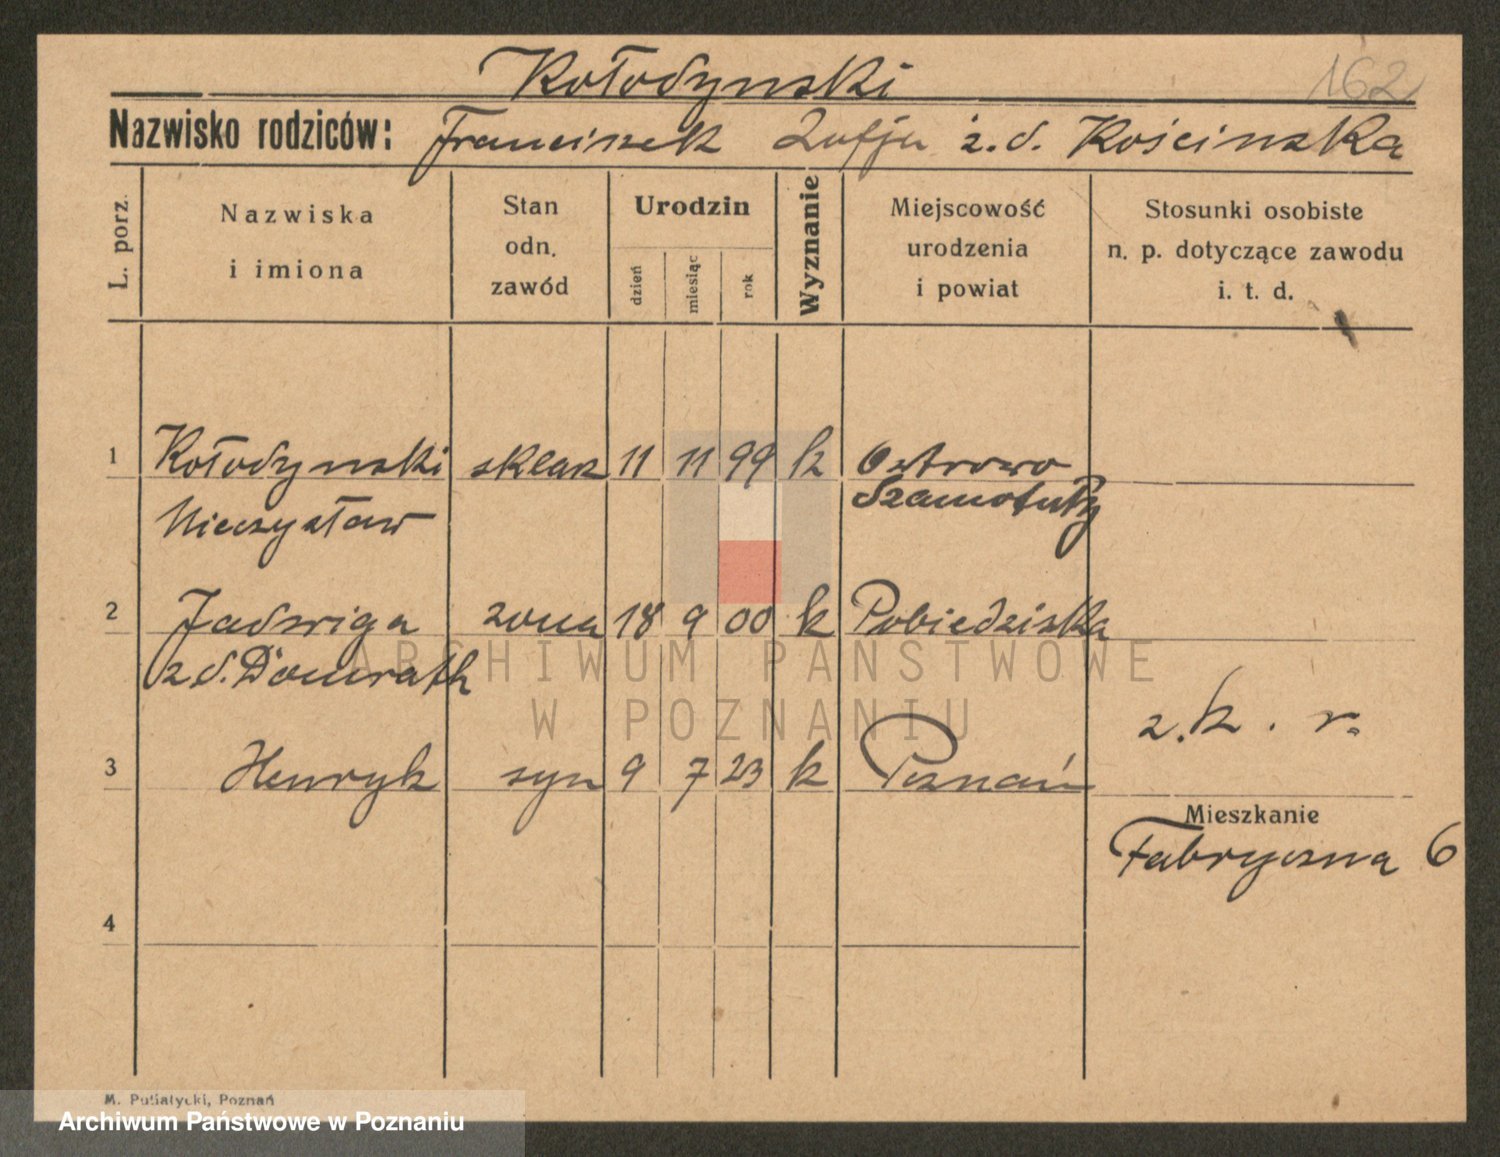 Kołodynski
162
Nazwisko rodziców: Franciszek Zofja z.d. Kościnska
L. porz.
Nazwiska i imiona
Stan odn. zawód
Urodzin
dzień
miesiąc
rok
Wyznanie
Miejscowość urodzenia i powiat
Stosunki osobiste n. p. dotyczące zawodu i. t. d.
1 Kołodynski sklarz 11 11 99 k Ostrowo
Mieczysław Szamotuły
2 Jadwiga zona 18 9 00 k Pobiedziska
z d. Domrath
z.k. r.
3 Henryk syn 9 7 23 k Poznań
Mieszkanie
Fabryczna 6
4
ARCHIWUM PAŃSTWOWE
W POZNANIU
M. Putiatycki, Poznań
Archiwum Państwowe w Poznaniu